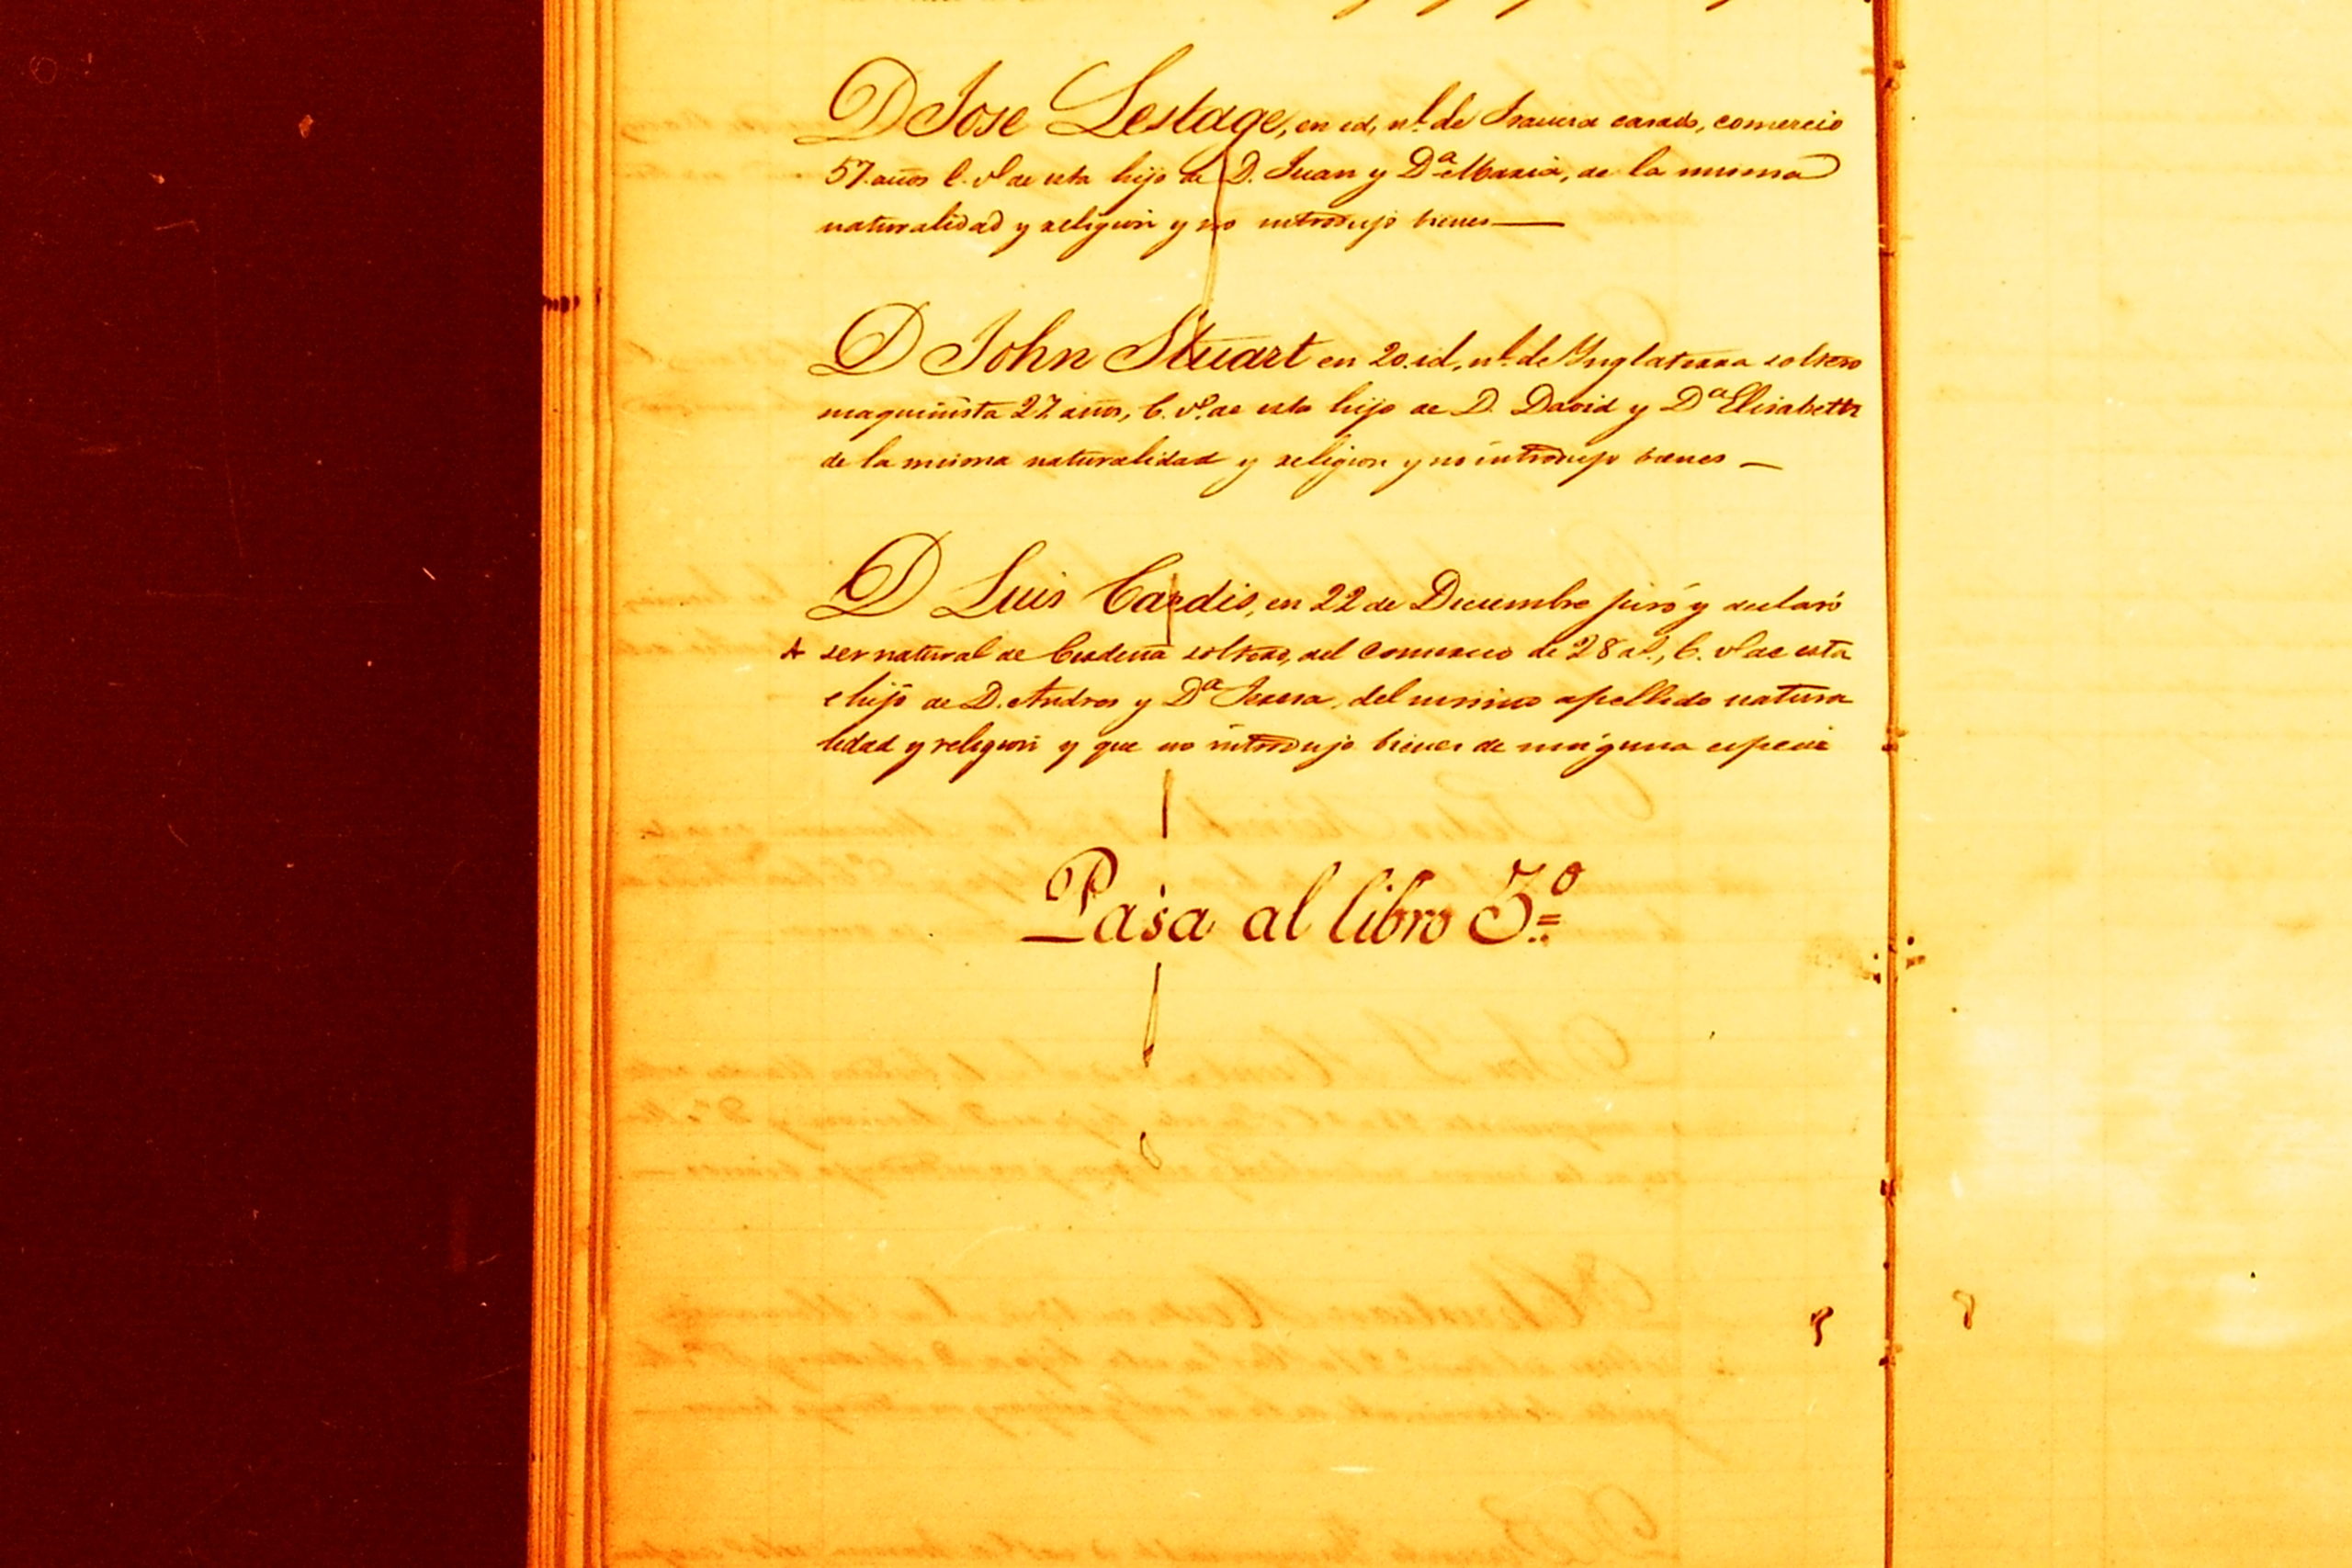 D José Lestage, en id, nl. de Francia casado, comercio
57 años C. vº de esta hijo de D. Juan y Dª Maria, de la misma
naturalidad y religion y no introdujo bienes—
D John Stuart en 20. id, nl. de Ynglaterra soltero
maquinista 27 años, C. vº. de esta hijo de D. David y Dª Elisabeth
de la misma naturalidad y religion y no introdujo bienes —
D Luis Cardis, en 22 de Diciembre juró y declaró
ser natural de Cerdeña soltero, del comercio de 28 aº., C. vº de esta
e hijo de D. Andres y Dª Teresa, del mismo apellido natura
lidad y religion y que no introdujo bienes de ninguna especie
Pasa al libro 3º=